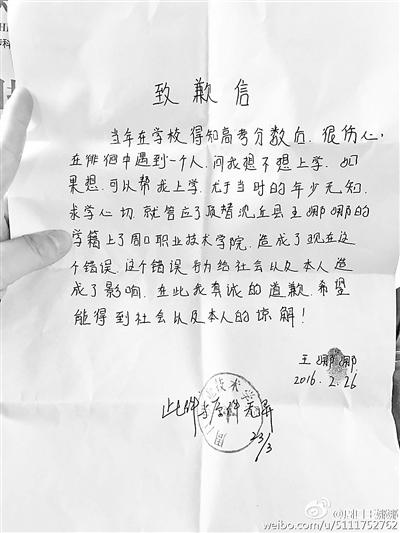 致歉信
当年在学校得知高考分数后.很伤心,
在徘徊中遇到一个人.问我想不想上学.如
果想.可以帮我上学.尤于当时的年少无知.
求学心切.就答应了顶替沈丘县王娜娜的
学籍上了周口职业技术学院.造成了现在这
个错误.这个错误 给社会以及本人造
成了影响.在此我真诚的道歉.希望
能得到社会以及本人的谅解!
王娜娜
2016.2.26
此件与原件无异
23/3
weibo.com/u/5111752762